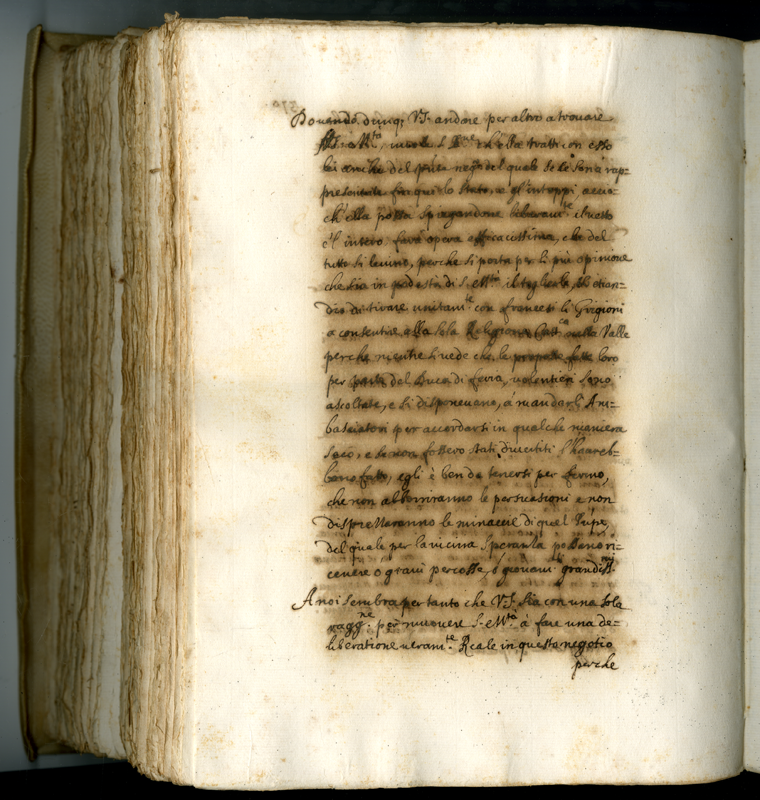 Dovendo dunq; V.S. andare per altro a trovare
S. Mtà, vuole S. Bne ch'ella tratti con esso
lei anche del pñte negº del quale se le sono rap-
presentate fin qui lo stato, e gl'intoppi, accio-
ch'ella possa spiegandone liberamte il netto
e l'intero farà opera efficacissima, che del
tutto si levino, perche si porta per li più opinione
che sia in podestà di S. Mtà il toglierli, etian-
dio di tirare unitamte con francesi li Grigioni
a consentire alla sola Religione Cattca nella Valle
perche mentre si vede che le proposte fatte loro
per parte del Duca di feria, volentieri sono
ascoltate, e si disponevano, à mandarli Am-
basciatori per accordarsi in qualche maniera
seco, e se non fossero stati divertiti l'haureb-
bono fatto, egli è ben da tenersi per fermo,
che non abhorriranno le persuasioni e non
disprezzaranno le minaccie di quel
del quale per la vicina speranza possano ri-
cevere ò gravi percosse, ò giovamti grandissmi
A noi sembra pertanto che V.S. sia con una sola
ragne per muovere S. Mtà à fare una de-
liberatione veramte Reale in questo negotio
perche